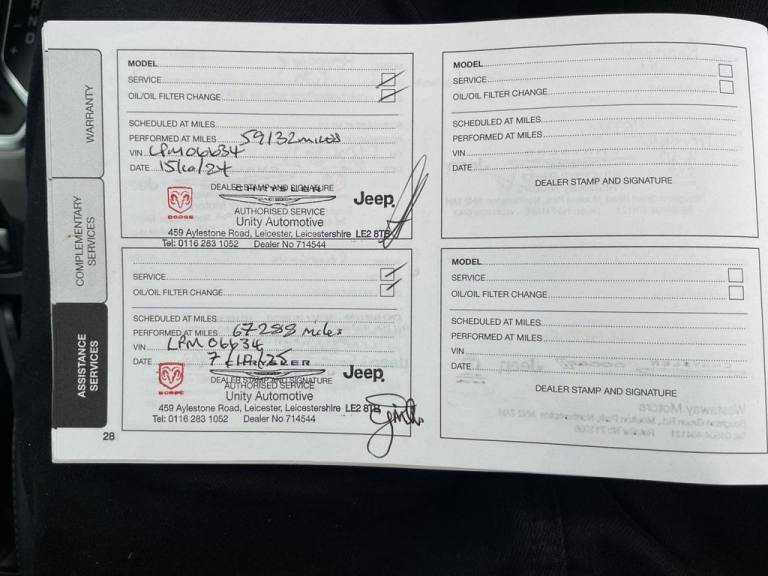 WARRANTY
COMPLEMENTARY
SERVICES
ASSISTANCE
SERVICES
MODEL
SERVICE
OIL/OIL FILTER CHANGE
SCHEDULED AT MILES
PERFORMED AT MILES 59132 miles
VIN LPM06634
DATE 15/10/24
DEALER STAMP AND SIGNATURE
DODGE
Jeep
AUTHORISED SERVICE
Unity Automotive
459 Aylestone Road, Leicester, Leicestershire LE2 8TB
Tel: 0116 283 1052 Dealer No 714544
SERVICE
OIL/OIL FILTER CHANGE
SCHEDULED AT MILES
PERFORMED AT MILES 67288 miles
VIN LPM06634
DATE 7
CHRYSLER
DEALER STAMP AND SIGNATURE
DODGE
Jeep
AUTHORISED SERVICE
Unity Automotive
459 Aylestone Road, Leicester, Leicestershire LE2 8TB
Tel: 0116 283 1052 Dealer No 714544
28
MODEL
SERVICE
OIL/OIL FILTER CHANGE
SCHEDULED AT MILES
PERFORMED AT MILES
VIN
DATE
DEALER STAMP AND SIGNATURE
MODEL
SERVICE
OIL/OIL FILTER CHANGE
SCHEDULED AT MILES
PERFORMED AT MILES
VIN
DATE
DEALER STAMP AND SIGNATURE